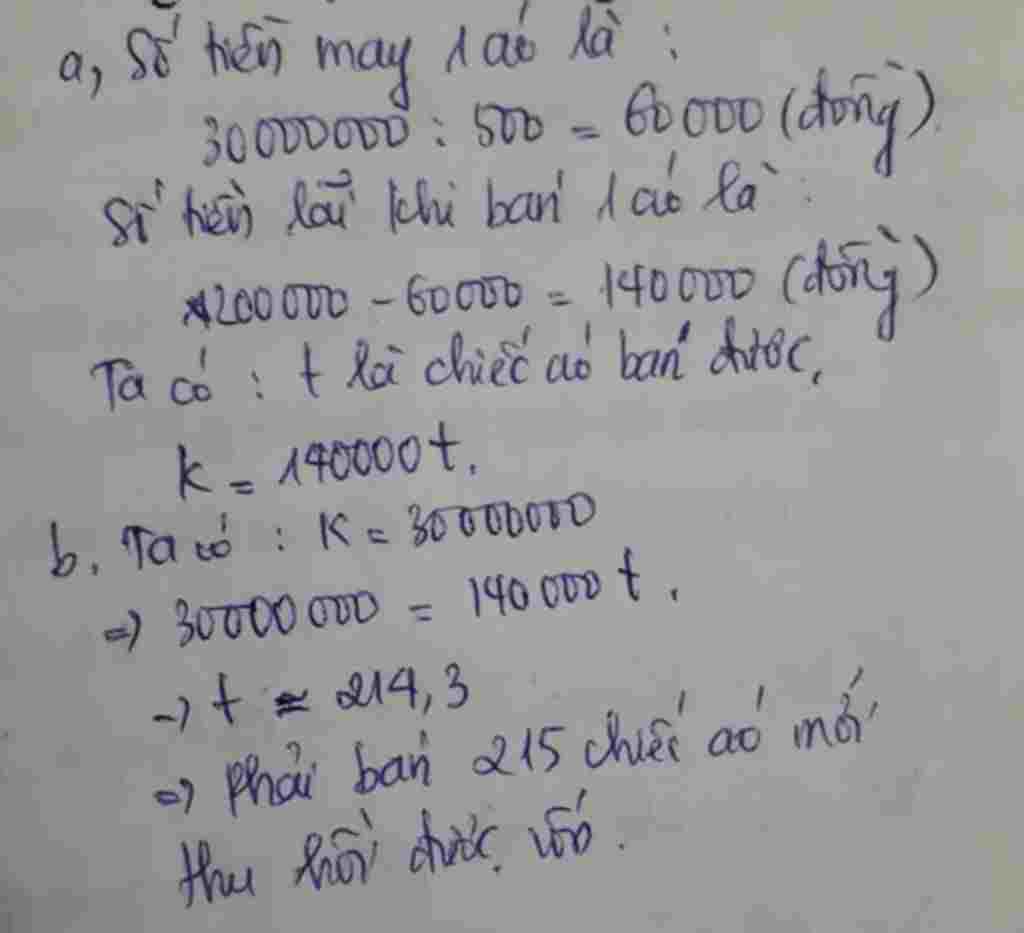 a, Số tiền may 1 áo là :
30000000 : 500 = 60000 (đồng).
Số tiền lãi khi bán 1 áo là :
200000 - 60000 = 140000 (đồng)
Ta có : t là chiếc áo bán được,
K = 140000t.
b. Ta có : K = 30000000
=> 30000000 = 140000t.
-> t ≈ 214,3
=> Phải bán 215 chiếc áo mới
thu hồi được vốn.